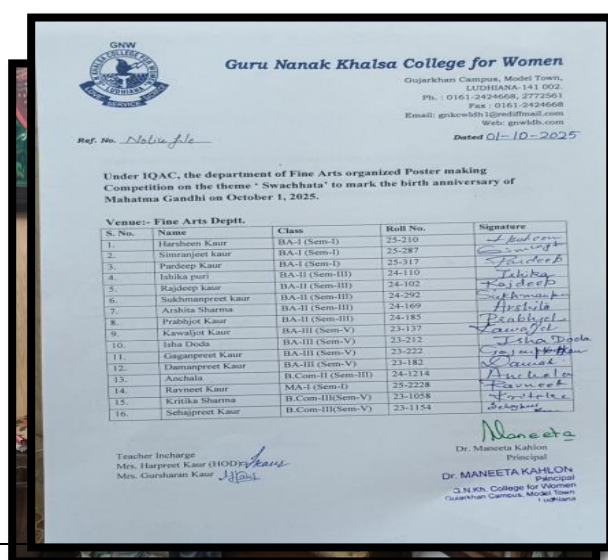 GNW
KHALSA COLLEGE FOR WOMEN
LUDHIANA
SERVICE
Guru Nanak Khalsa College for Women
Gujarkhan Campus, Model Town,
LUDHIANA-141 002.
Ph. : 0161-2424668, 2772561
Fax : 0161-2424668
Email: gnkcwldh1@rediffmail.com
Web: gnwldh.com
Ref. No. Notice file
Dated 01-10-2025
Under IQAC, the department of Fine Arts organized Poster making
Competition on the theme ‘ Swachhata’ to mark the birth anniversary of
Mahatma Gandhi on October 1, 2025.
Venue:- Fine Arts Deptt.
S. No. Name Class Roll No. Signature
1. Harsheen Kaur BA-I (Sem-I) 25-210
2. Simranjeet kaur BA-I (Sem-I) 25-287
3. Pardeep kaur BA-I (Sem-I) 25-317 Pardeep
4. Ishika puri BA-II (Sem-III) 24-110 Ishika
5. Rajdeep kaur BA-II (Sem-III) 24-102 Rajdeep
6. Sukhmanpreet kaur BA-II (Sem-III) 24-292
7. Arshita Sharma BA-II (Sem-III) 24-169 Arshita
8. Prabhjot Kaur BA-II (Sem-III) 24-185 Prabhjot
9. Kawaljot Kaur BA-III (Sem-V) 23-137 Kawaljot
10. Isha Doda BA-III (Sem-V) 23-212 Isha Doda
11. Gaganpreet Kaur BA-III (Sem-V) 23-222
12. Damanpreet Kaur BA-III (Sem-V) 23-182
13. Anchala B.Com-II (Sem-III) 24-1214 Anchala
14. Ravneet Kaur MA-I (Sem-I) 25-2228 Ravneet
15. Kritika Sharma B.Com-III(Sem-V) 23-1058 Kritika
16. Sehajpreet Kaur B.Com-III(Sem-V) 23-1154
Maneeta
Dr. Maneeta Kahlon
Principal
Teacher Incharge
Mrs. Harpreet Kaur (HOD)
Mrs. Gursharan Kaur
Dr. MANEETA KAHLON
Principal
G.N.Kh. College for Women
Gujarkhan Campus, Model Town
Ludhiana